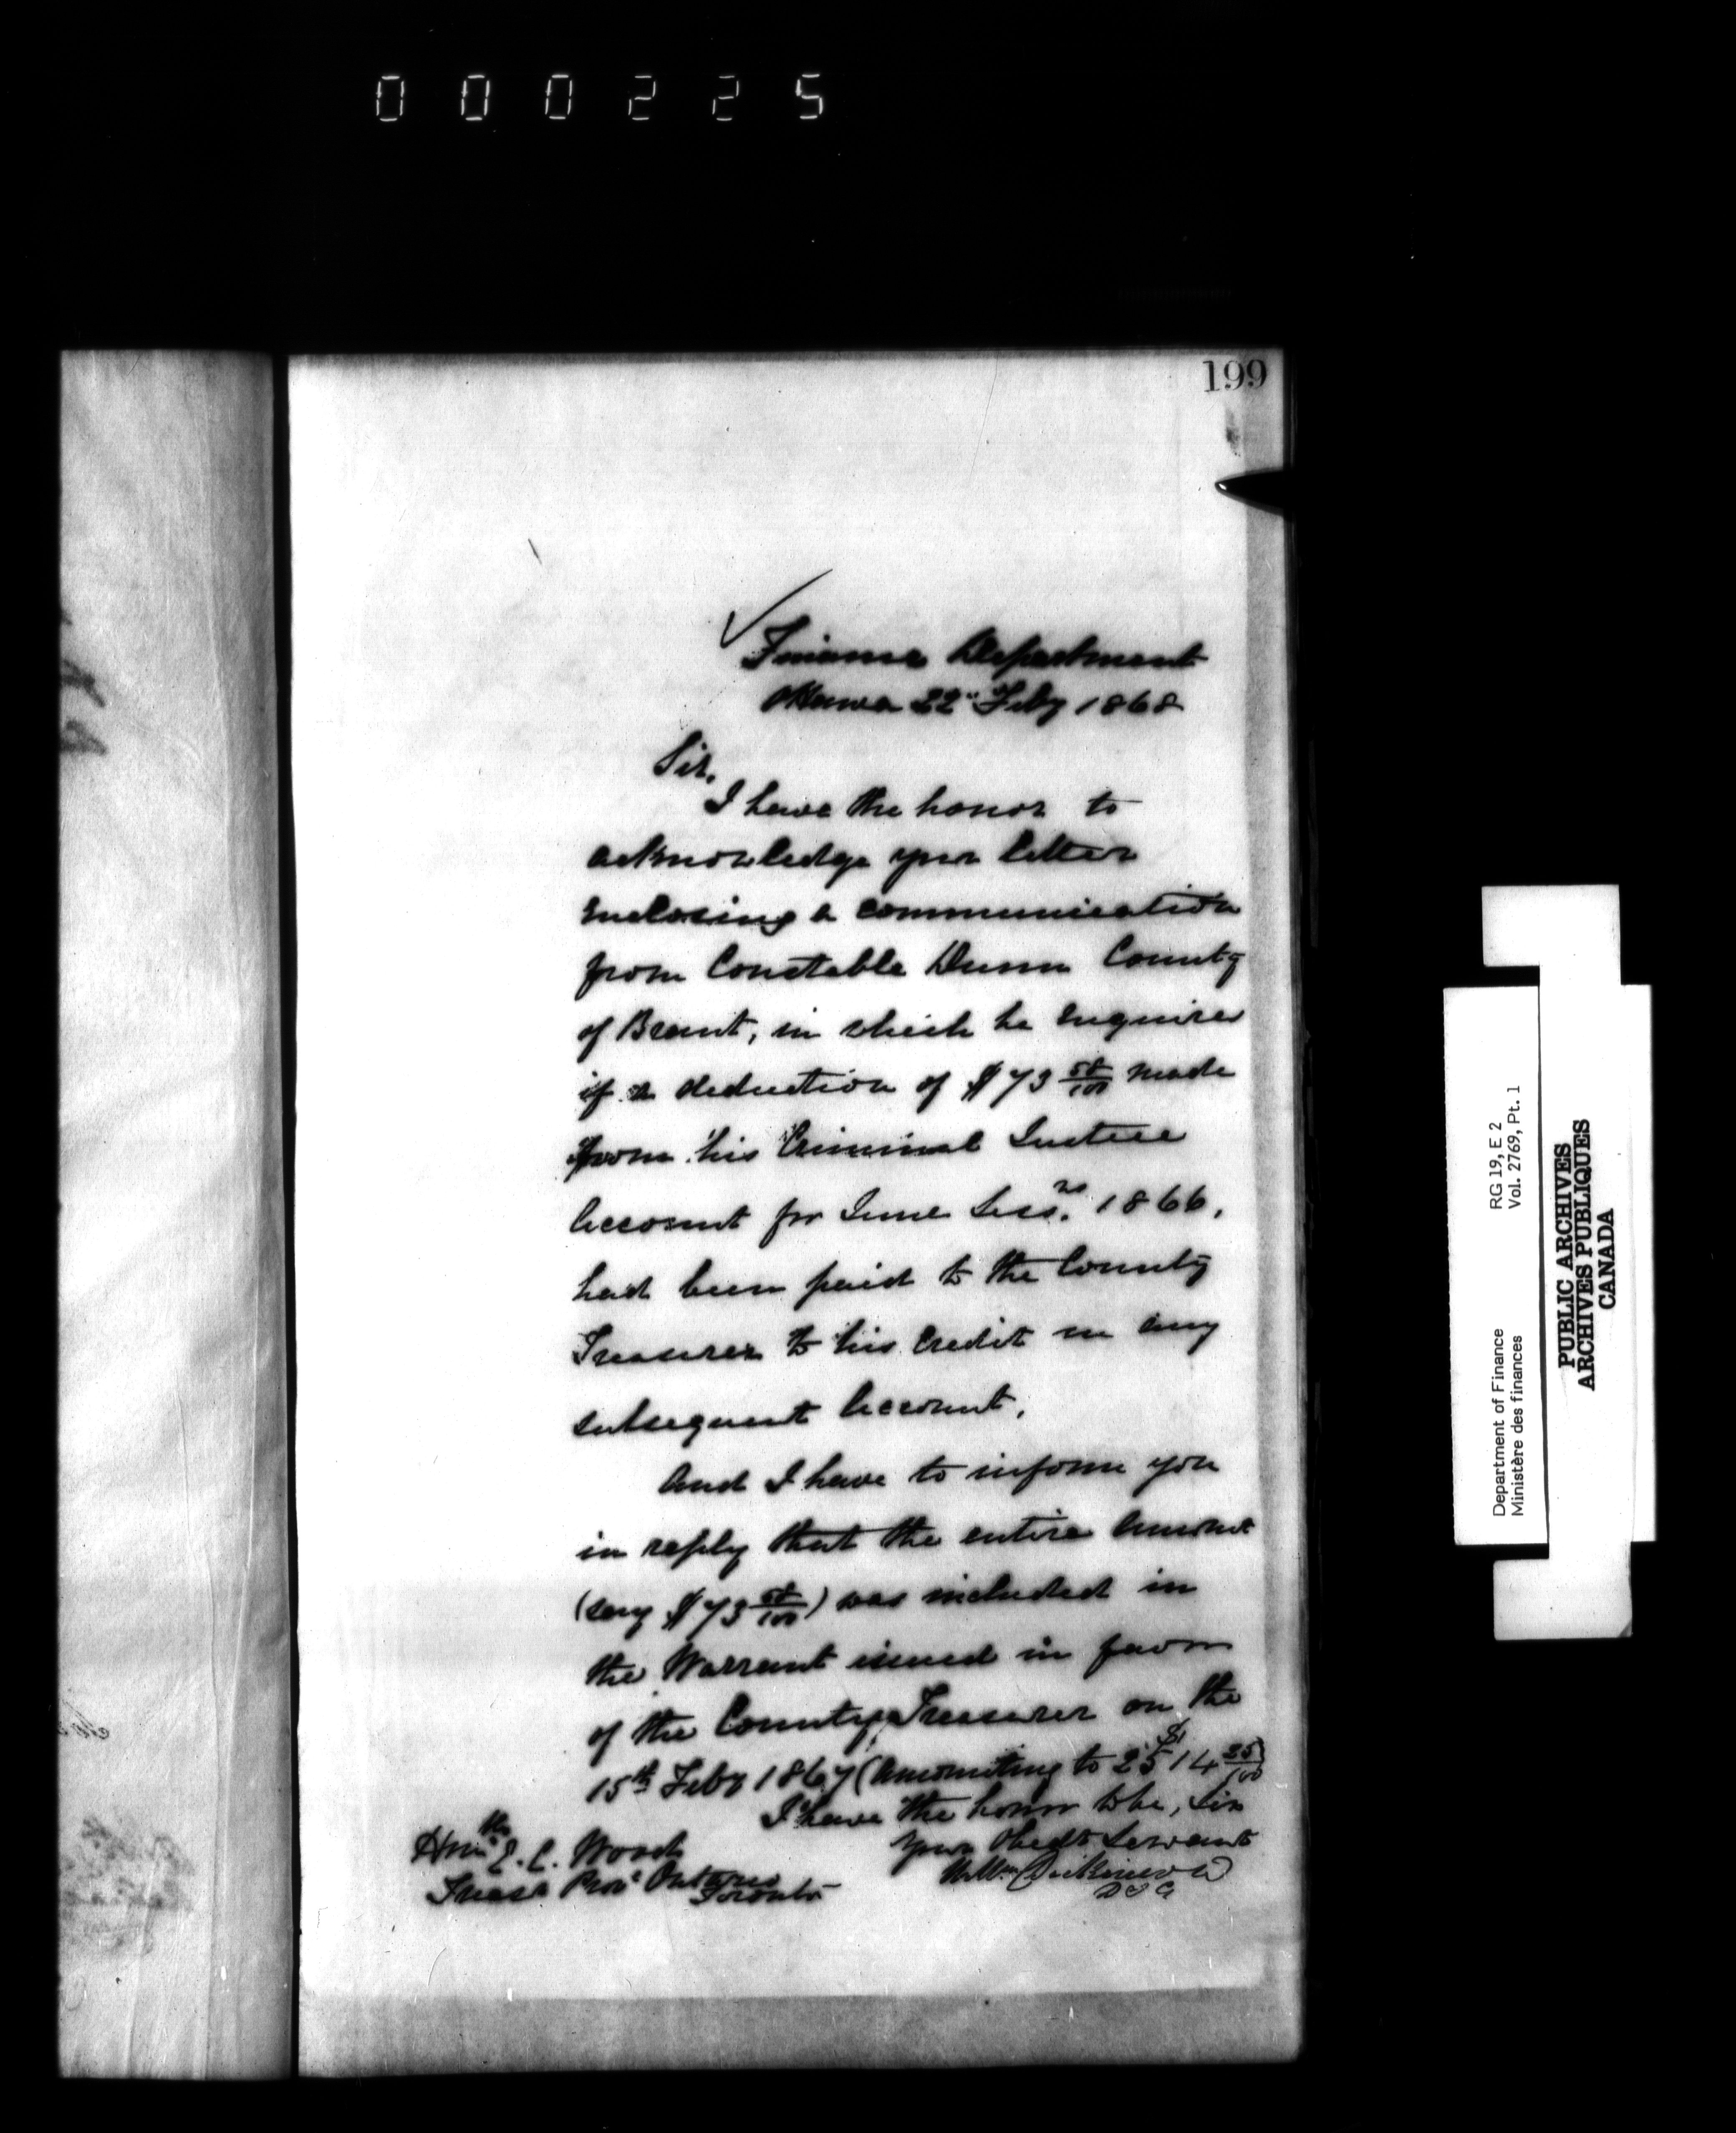 000225
199
Finance Department
Ottawa 22" Feby 1868
Sir,
I have the honor to
acknowledge your letter
enclosing a communication
from Constable Dunn County
of Brant, in which he enquires
if a deduction of $73 58/100 made
from his Criminal Justice
Account for June Sess.ns 1866,
had been paid to the County
Treasurer to his Credit in any
subsequent Account.
And I have to inform you
in reply that the entire Amount
(say $73 58/100) was included in
the Warrant issued in favor
of the County Treasurer on the
15th Feby 1867 (Amounting to $2514 25/100)
I have the honor to be, Sir
Your Obedt Servant
Wm Dickinson
D I G
Honble E. C. Wood
Treasr Prov Ontario
Toronto
Department of Finance RG 19, E 2
Ministère des finances Vol. 2769, Pt. 1
PUBLIC ARCHIVES
ARCHIVES PUBLIQUES
CANADA